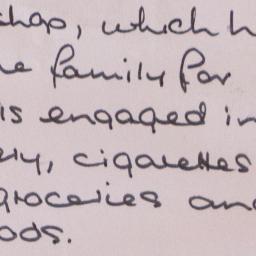 shop, which h
e family for
is engaged in
ery, cigarettes
groceries and
ods.